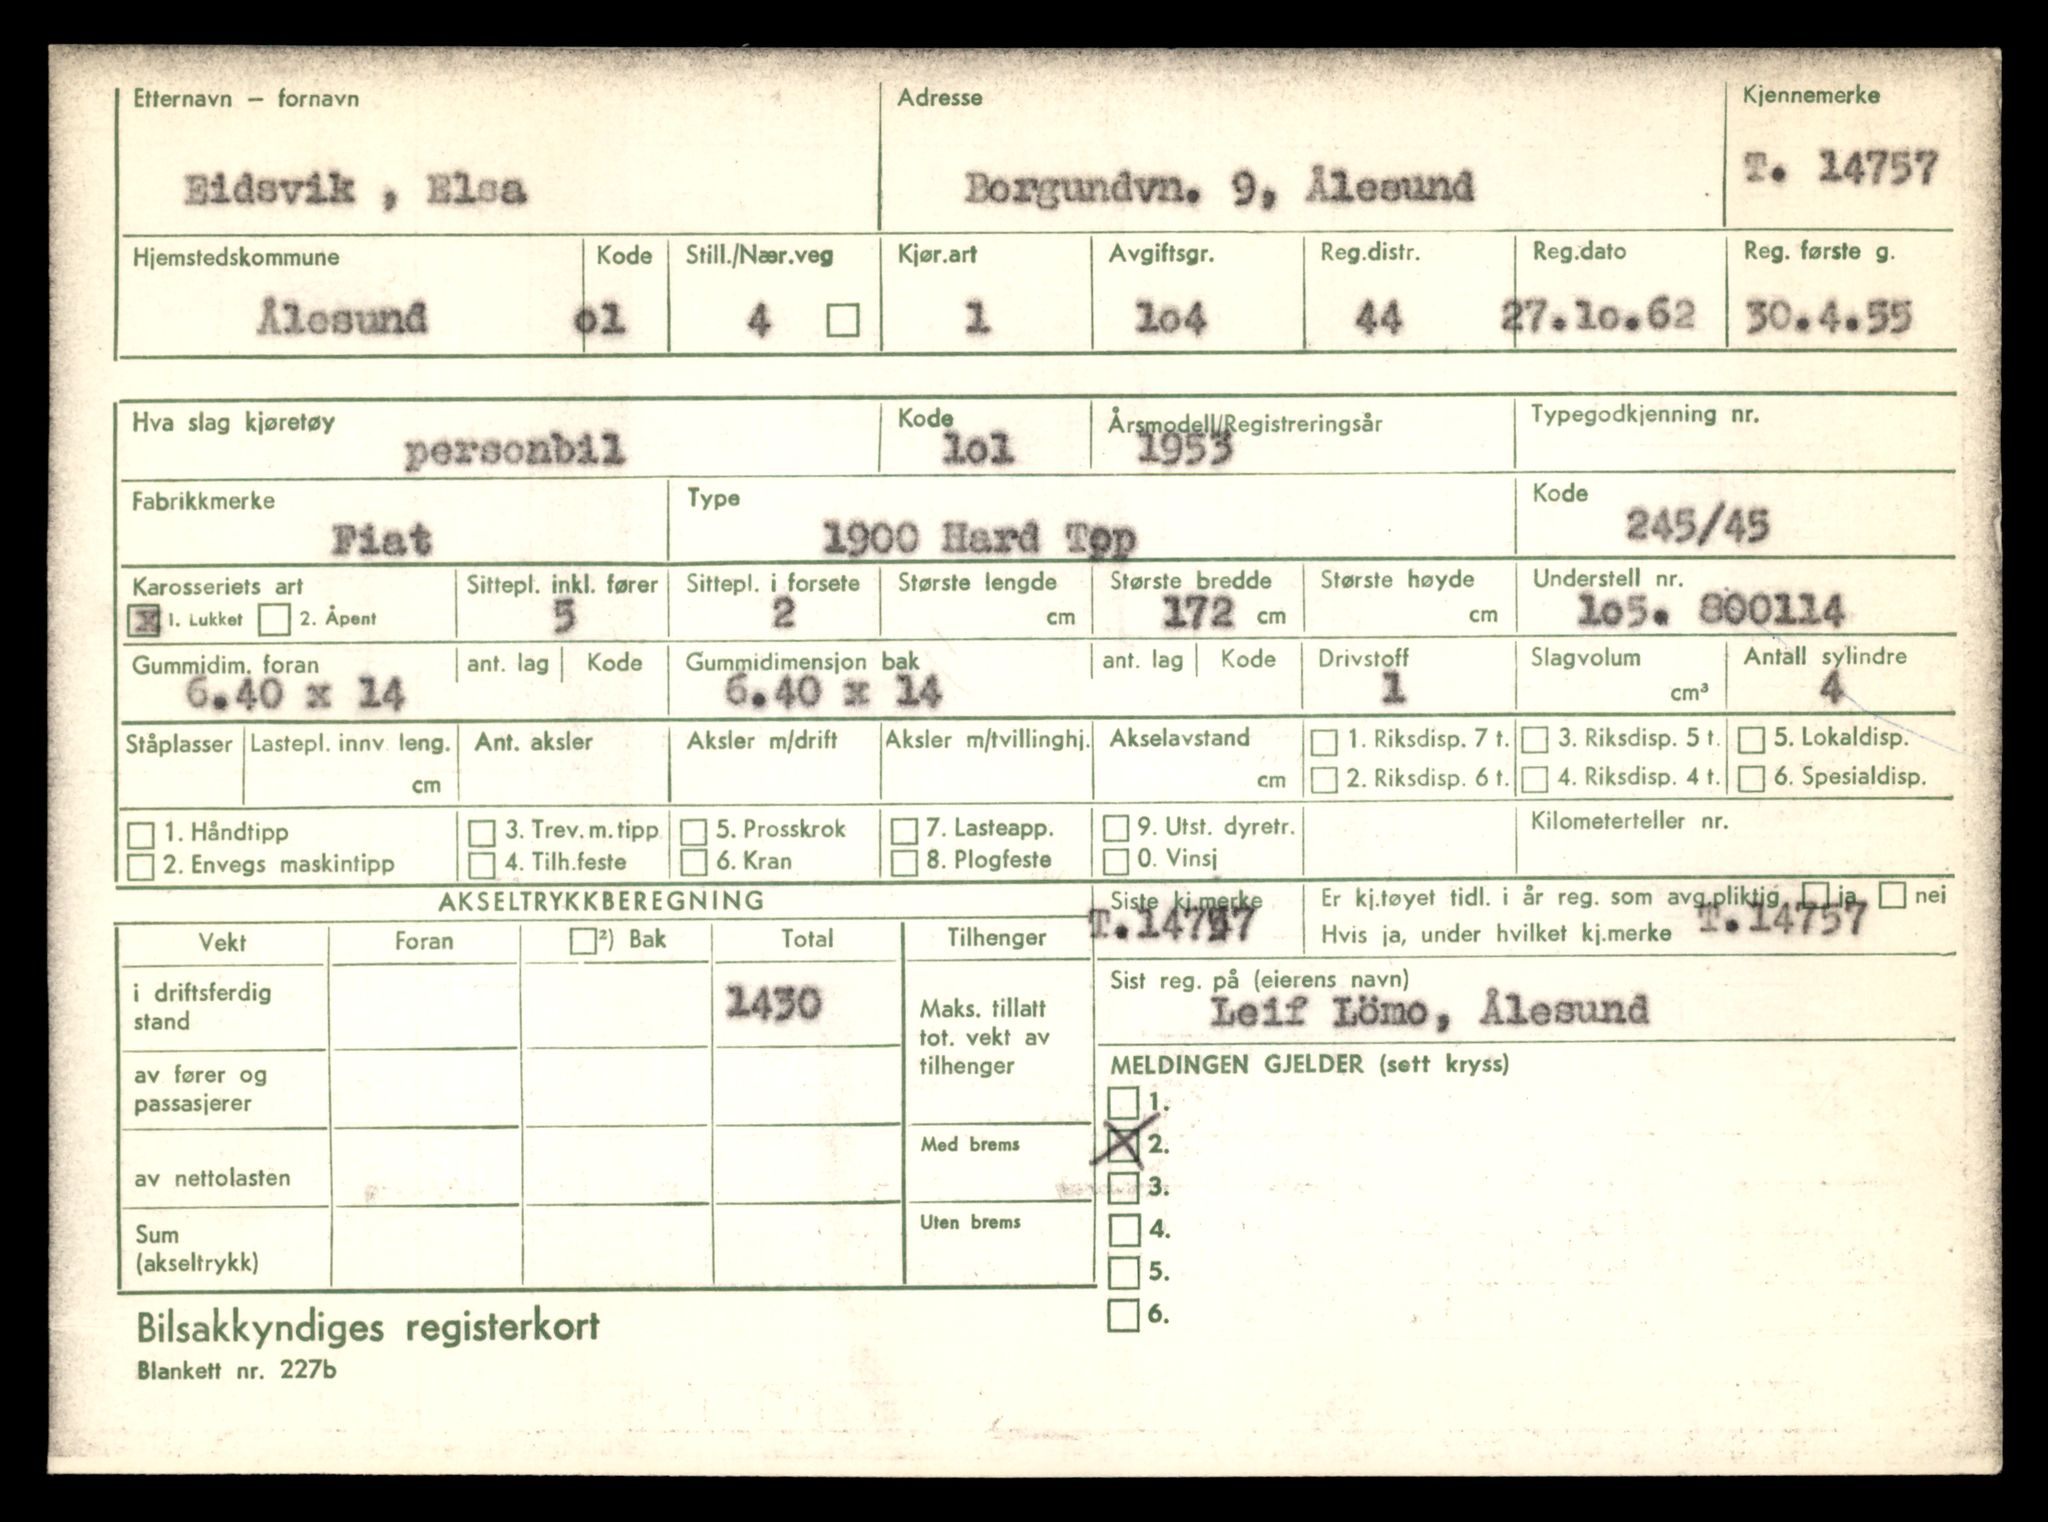 Etternavn – fornavn Adresse Kjennemerke
Eidsvik , Elsa Borgundvn. 9, Ålesund T. 14757
Hjemstedskommune Kode Still./Nær.veg Kjør.art Avgiftsgr. Reg.distr. Reg.dato Reg. første g.
Ålesund o1 4 1 1o4 44 27.1o.62 30.4.55
Hva slag kjøretøy Kode Årsmodell/Registreringsår Typegodkjenning nr.
personbil 1o1 1953
Fabrikkmerke Type Kode
Fiat 1900 Hard Top 245/45
Karosseriets art Sittepl. inkl. fører Sittepl. i forsete Største lengde Største bredde Største høyde Understell nr.
x 1. Lukket 2. Åpent 5 2 cm 172 cm cm 1o5. 800114
Gummidim. foran ant. lag Kode Gummidimensjon bak ant. lag Kode Drivstoff Slagvolum Antall sylindre
6.40 x 14 6.40 x 14 1 cm³ 4
Ståplasser Lastepl. innv. leng. Ant. aksler Aksler m/drift Aksler m/tvillinghj. Akselavstand 1. Riksdisp. 7 t. 3. Riksdisp. 5 t. 5. Lokaldisp.
cm cm 2. Riksdisp. 6 t. 4. Riksdisp. 4 t. 6. Spesialdisp.
1. Håndtipp 3. Trev. m. tipp 5. Prosskrok 7. Lasteapp. 9. Utst. dyretr. Kilometerteller nr.
2. Envegs maskintipp 4. Tilh.feste 6. Kran 8. Plogfeste 0. Vinsj
AKSELTRYKKBEREGNING Siste kj.merke Er kj.tøyet tidl. i år reg. som avg.pliktig ja nei
T.14757 Hvis ja, under hvilket kj.merke T.14757
Vekt Foran ²) Bak Total Tilhenger
Sist reg. på (eierens navn)
Leif Lömo, Ålesund
i driftsferdig
stand 1430
Maks. tillatt
tot. vekt av
tilhenger
MELDINGEN GJELDER (sett kryss)
av fører og
passasjerer
1.
Med brems X 2.
av nettolasten 3.
Uten brems 4.
Sum
(akseltrykk) 5.
6.
Bilsakkyndiges registerkort
Blankett nr. 227b